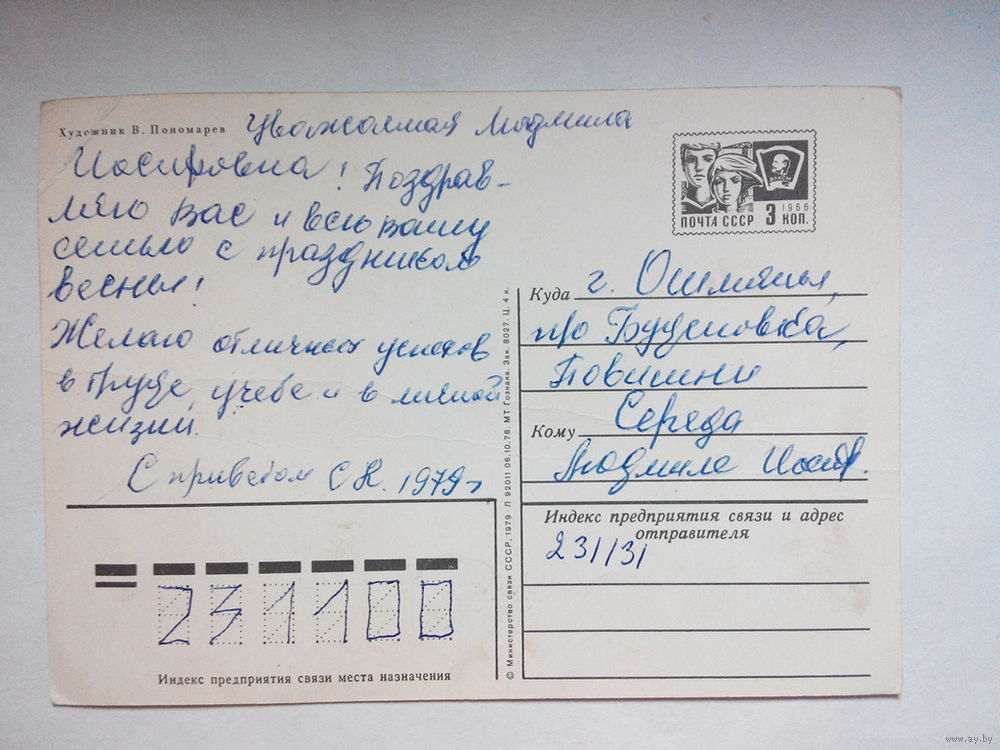 Художник В. Пономарев
Уважаемая Людмила
Иосифовна! Поздрав-
ляю Вас и всю вашу
семью с праздником
весны!
Желаю отличных успехов
в труде, учебе и в личной
жизни.
С приветом С К. 1979г
ПОЧТА СССР
3 КОП.
1966
ВЛКСМ
Куда г. Ошмяны,
п/о Буденовка,
Повишни
Кому Середа
Людмиле Иосиф.
Индекс предприятия связи и адрес
отправителя
231131
231100
Индекс предприятия связи места назначения
© Министерство связи СССР, 1979 Л 92011 06.10.78. МТ Гознака. Зак. 8027. Ц. 4 к.
www.ay.by